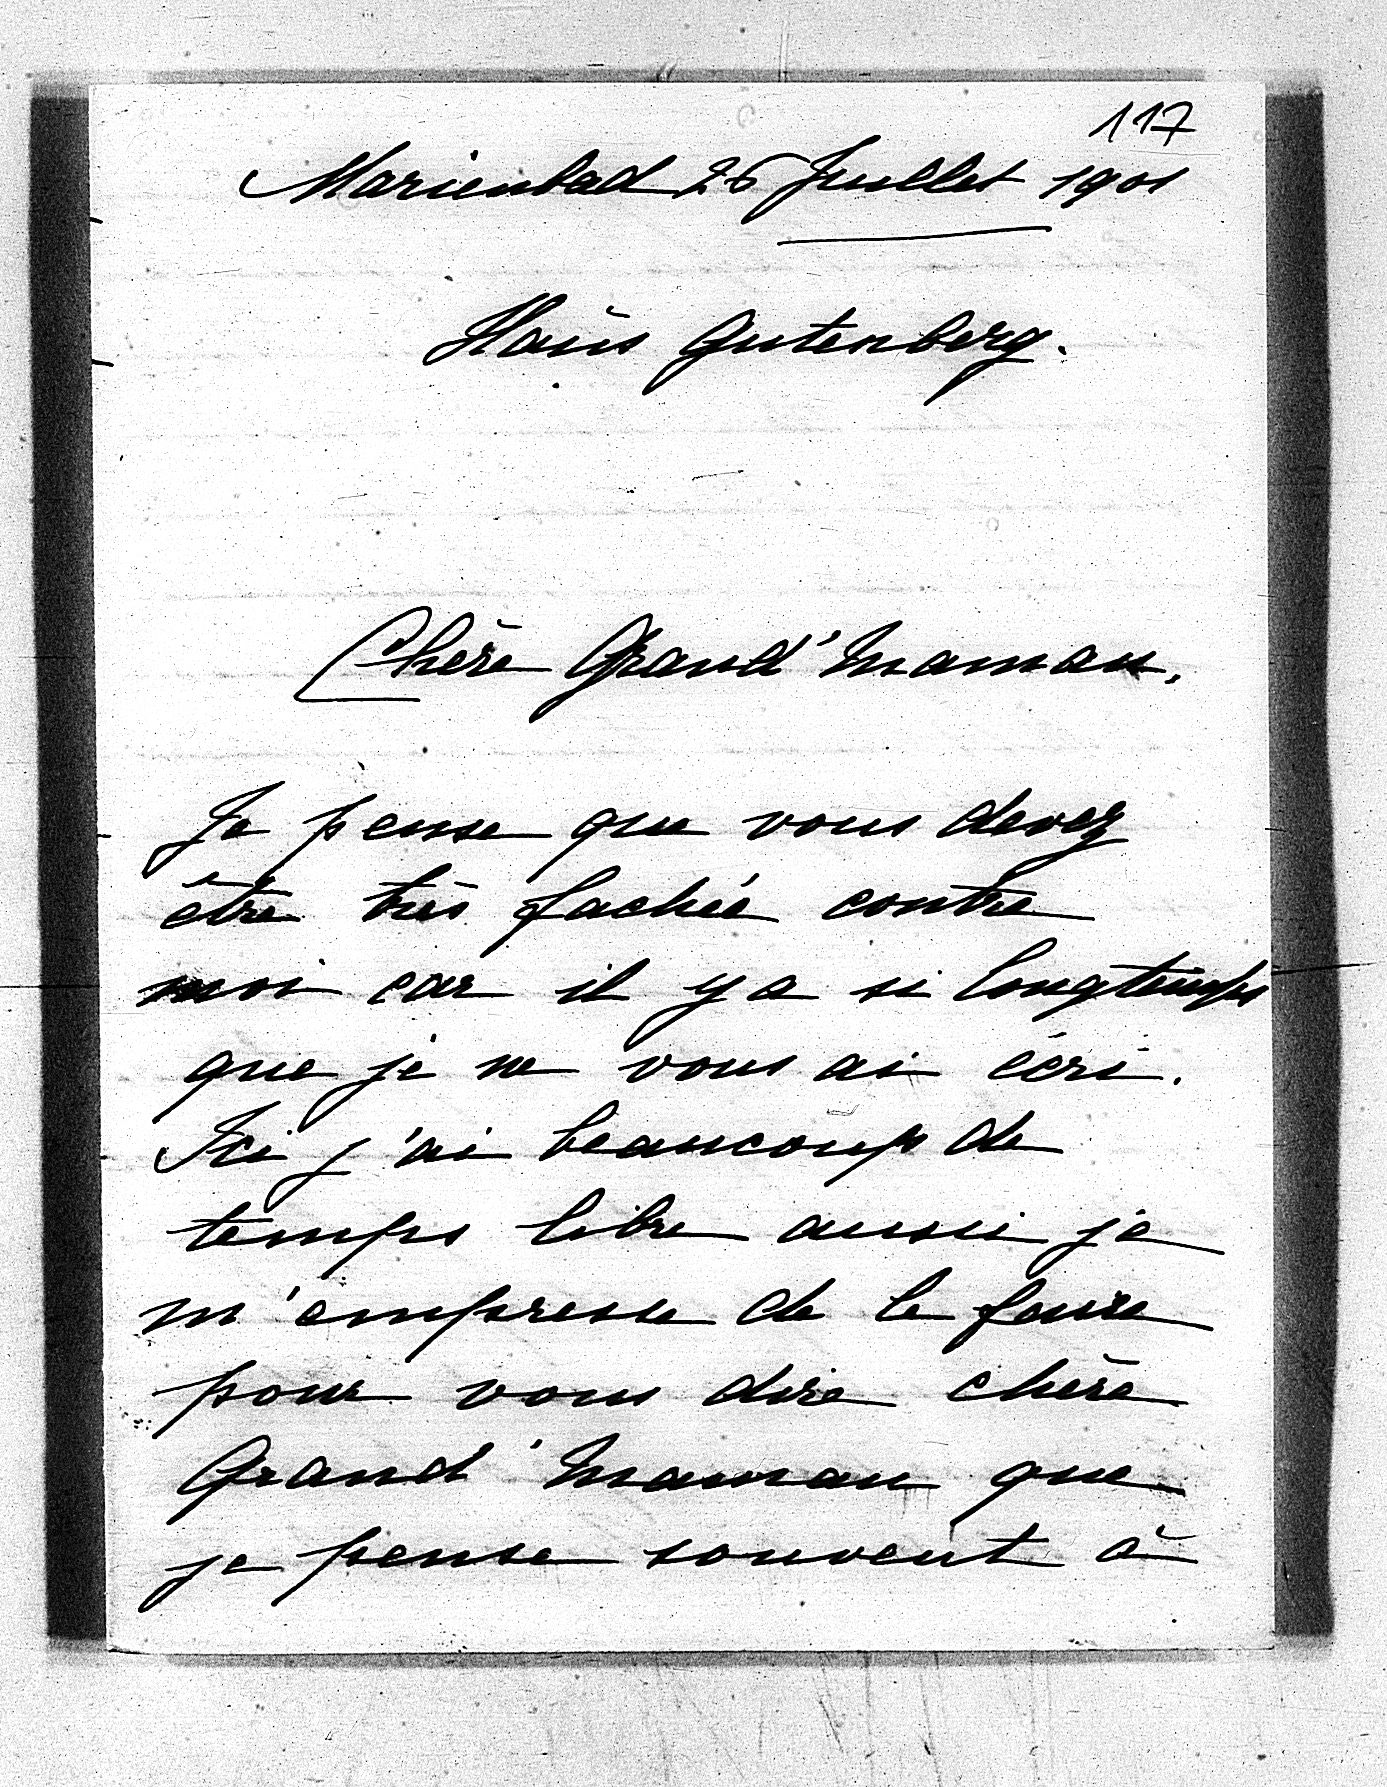 117
Marienbad 26 Juillet 1901
Haŭs Gutenberg.
Chère Grand'Maman,
Je pense que vous devez
être très fachée contre
moi car il y a si longtemps
que je ne vous ai écri.
Ici j'ai beaucoup de
temps libre aussi je
m'empresse de le faire
pour vous dire chère
Grand'Maman que
je pense souvent à